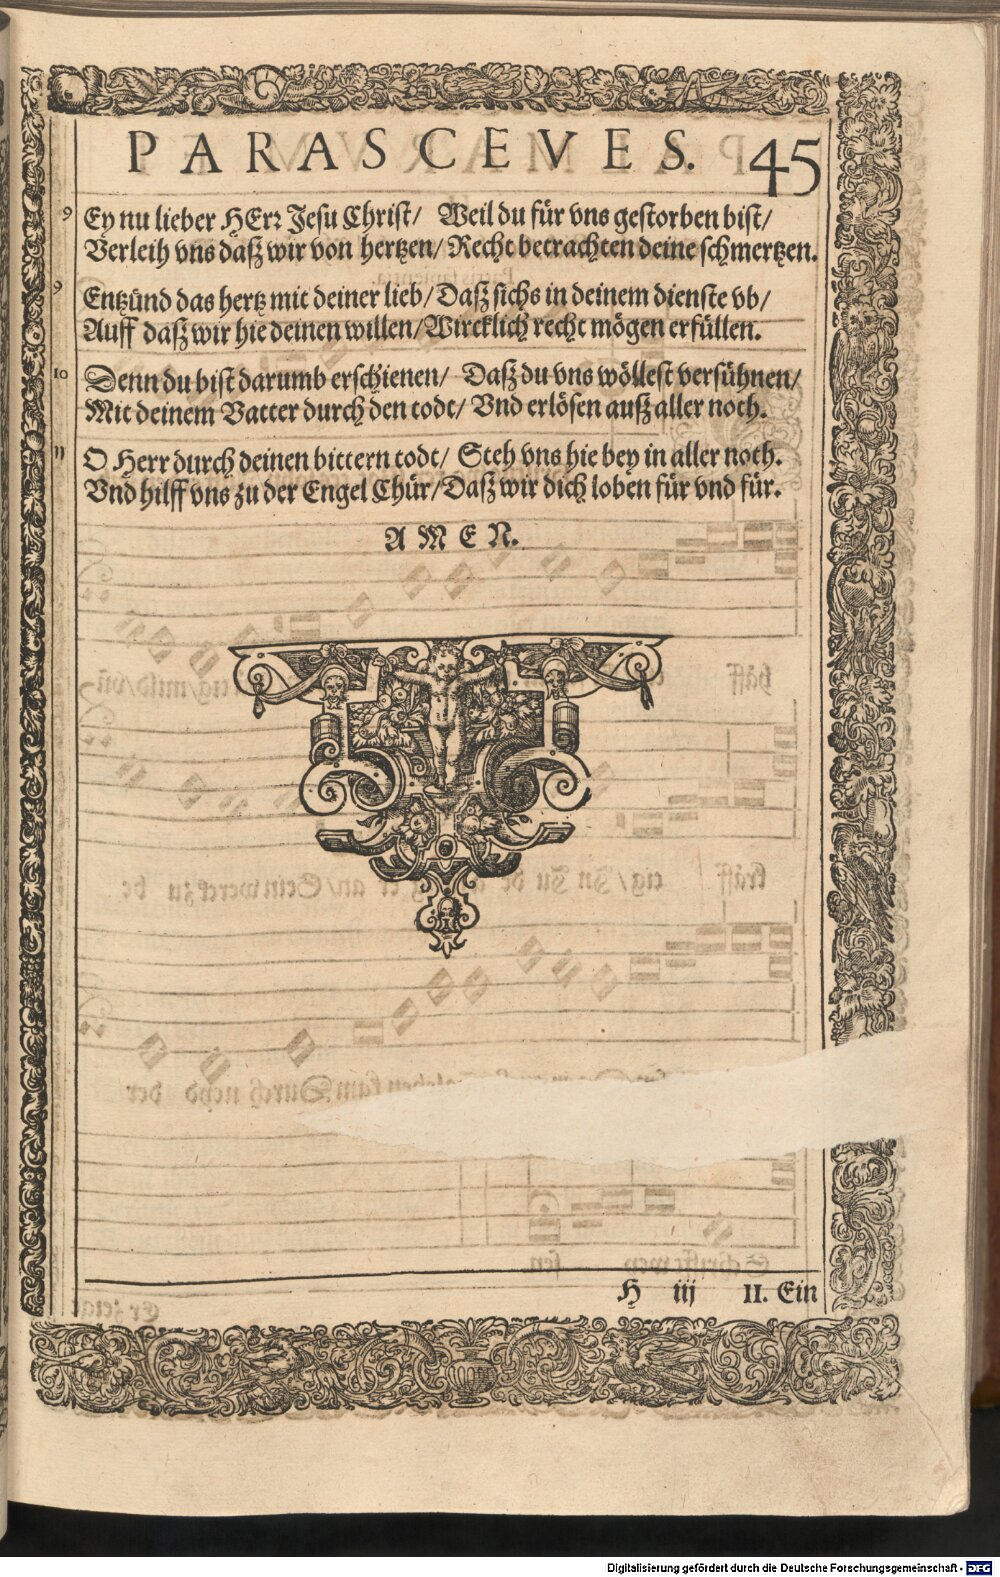 PARASCEVES. 45
9 Ey nu lieber HErr Jesu Christ/ Weil du für vns gestorben bist/
Verleih vns daß wir von hertzen/ Recht betrachten deine schmertzen.
9 Entzünd das hertz mit deiner lieb/ Daß sichs in deinem dienste vb/
Auff daß wir hie deinen willen/ Wircklich recht mögen erfüllen.
10 Denn du bist darumb erschienen/ Daß du vns wöllest versühnen/
Mit deinem Vatter durch den todt/ Vnd erlösen auß aller noth.
11 O Herr durch deinen bittern todt/ Steh vns hie bey in aller noth.
Vnd hilff vns zu der Engel Chür/ Daß wir dich loben für vnd für.
AMEN.
H iij II. Ein
Digitalisierung gefördert durch die Deutsche Forschungsgemeinschaft - DFG